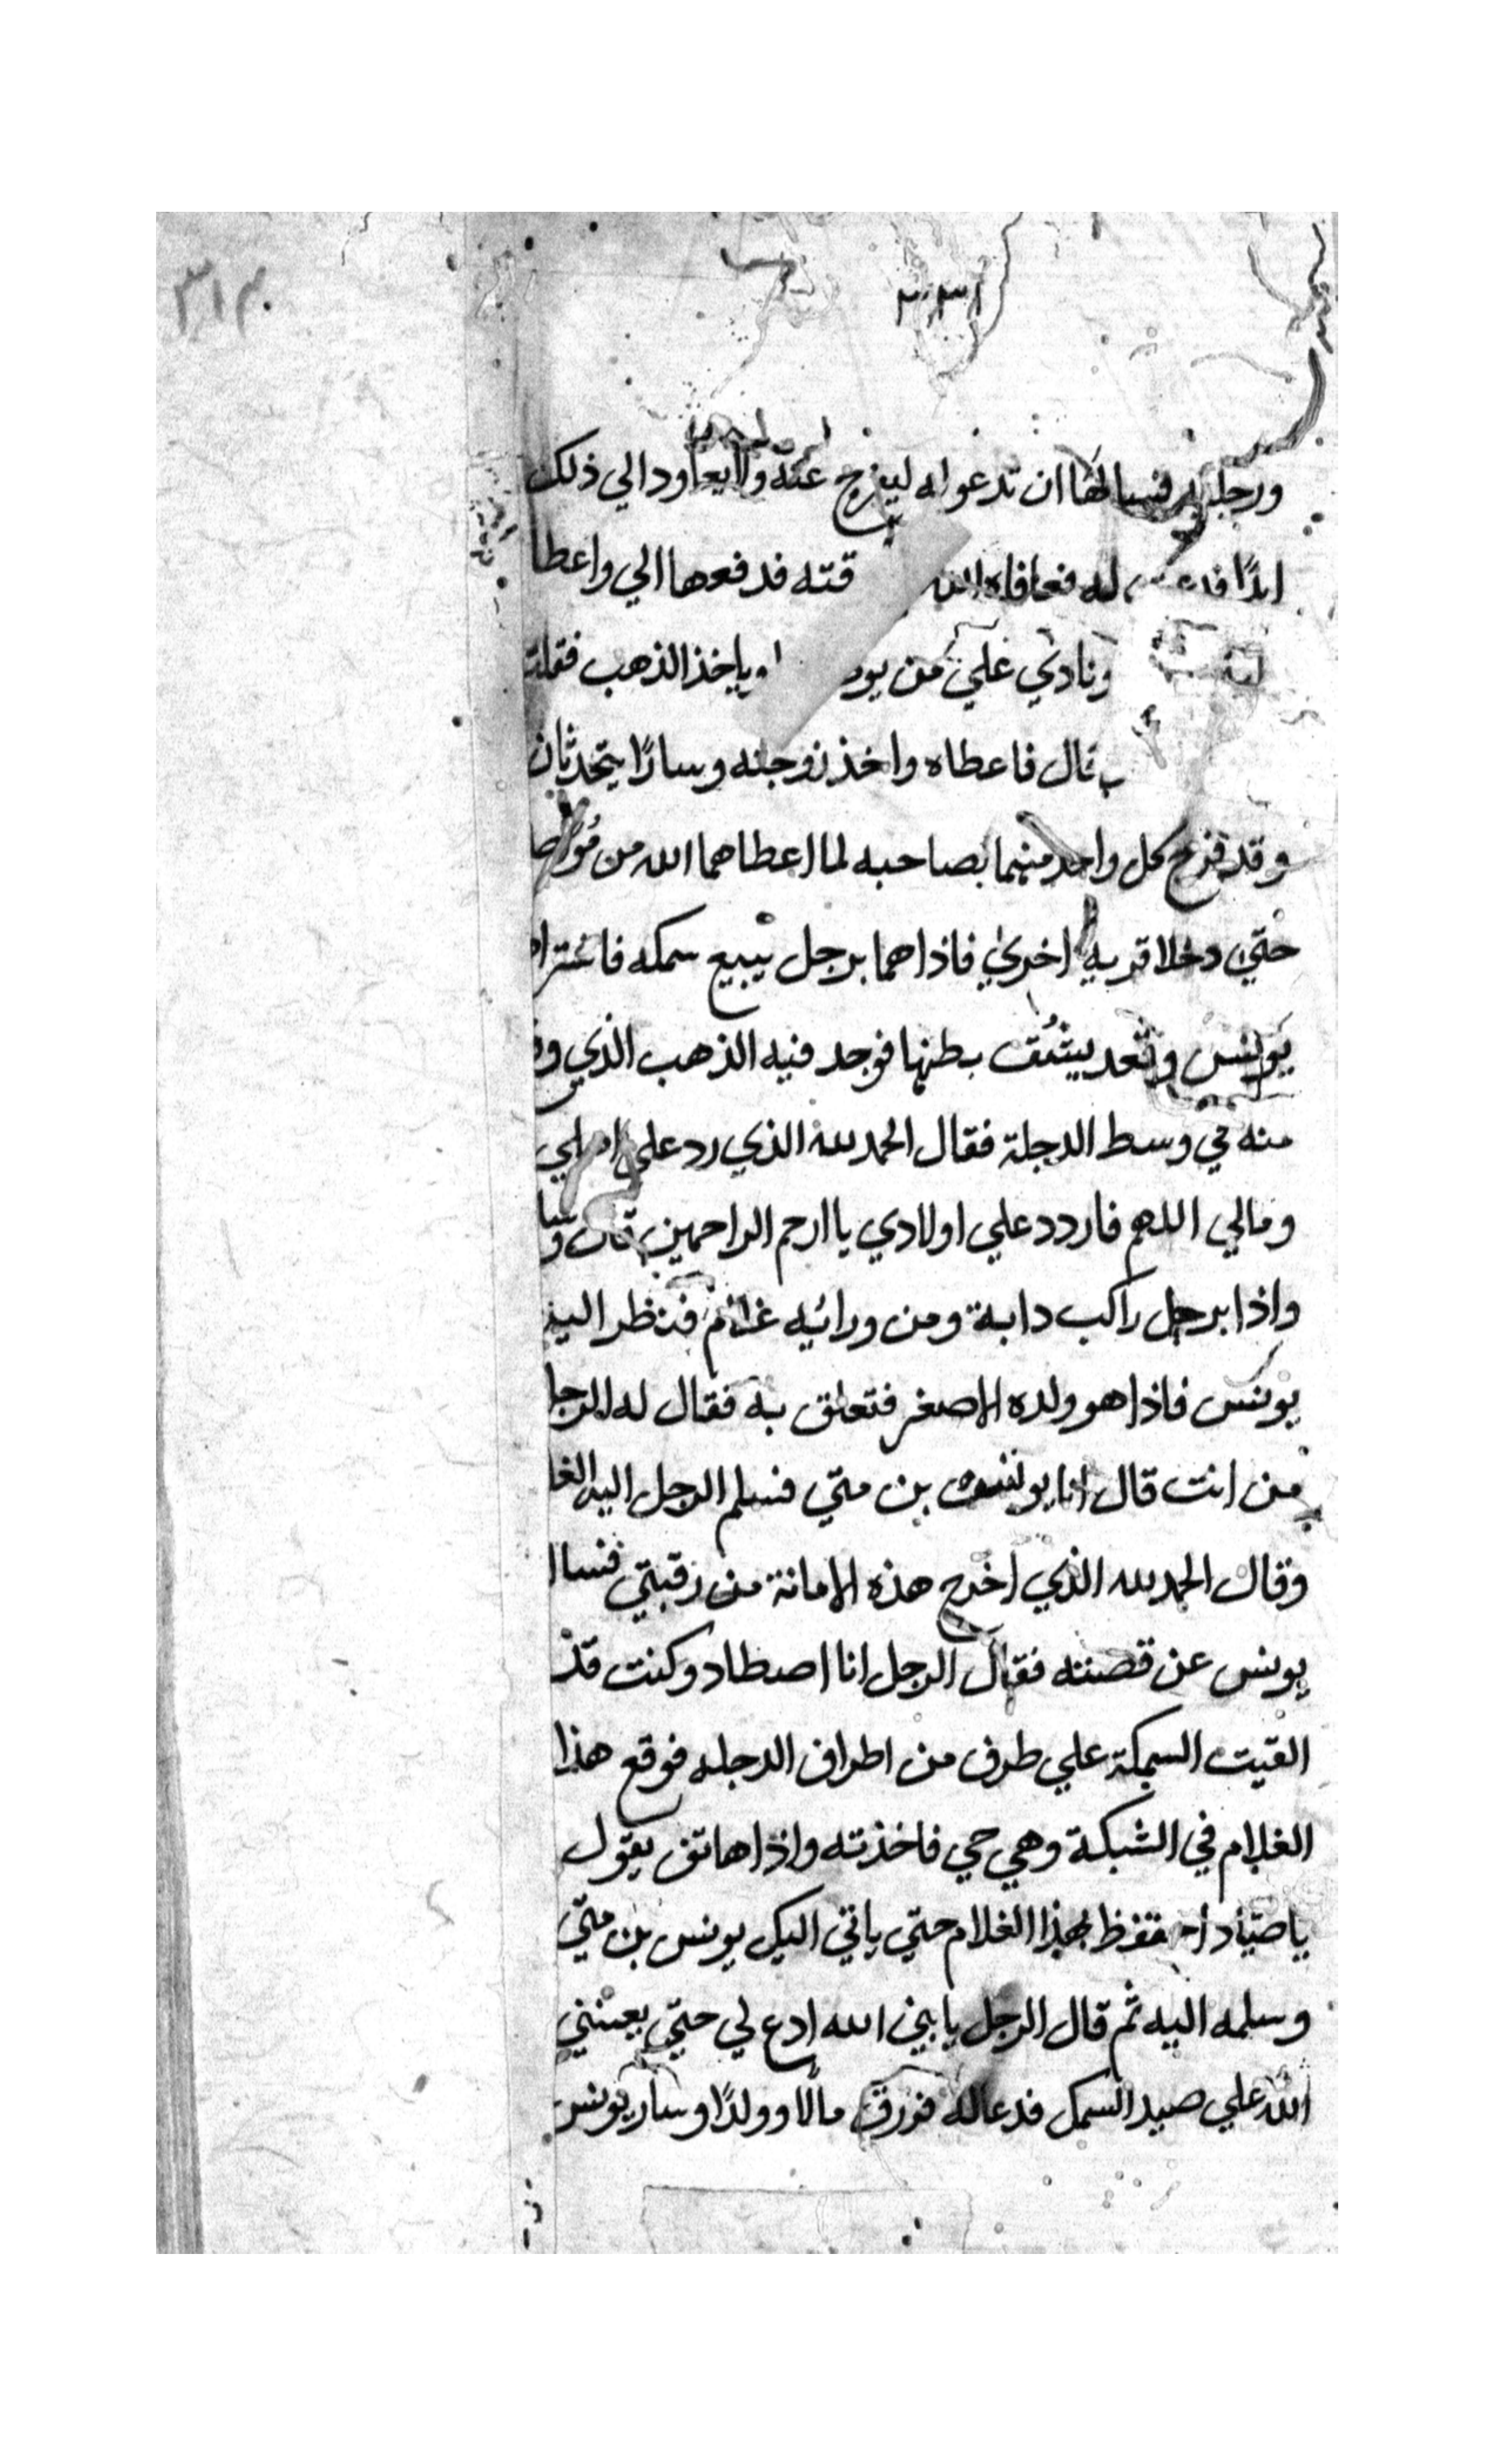 ٣١٣
٣٣١
ورجليه فسالها ان تدعوا له ليفرج عنه ولا يعاود الي ذلك
ابدًا له فعافاه الله قته فدفعها الي واعطا
ونادي علي من ياخذ الذهب فقلت
قال فاعطاه واخذ زوجته وسارا يتحدثان
وقد فرح كل واحد منهما بصاحبه لما اعطاهما الله من
حتي دخلا قريه اخري فاذا هما برجل يبيع سمكه فاشترا
يونس وقعد يشق بطنها فوجد فيه الذهب الذي
منه في وسط الدجلة فقال الحمد لله الذي رد علي اهلي
ومالي اللهم فاردد علي اولادي يا ارحم الراحمين قال
واذا برجل راكب دابة ومن ورائيه غلام فنظر اليه
يونس فاذا هو ولده الاصغر فتعلق به فقال له الرجل
من انت قال انا يونس بن متي فسلم الرجل اليه الغا
وقال الحمد لله الذي اخرج هذه الامانة من رقبتي فسال
يونس عن قصته فقال الرجل انا اصطاد وكنت قد
القيت السمكة علي طرف من اطراف الدجله فوقع هذا
الغلام في الشبكة وهي حي فاخذته واذا هاتف يقول
يا صياد احتفظ بهذا الغلام حتي ياتي اليك يونس بن متي
وسلمه اليه ثم قال الرجل يا نبي الله ادع لي حتي يعينني
الله علي صيد السمك فدعا له فرزق مالًا وولدًا وسار يونس